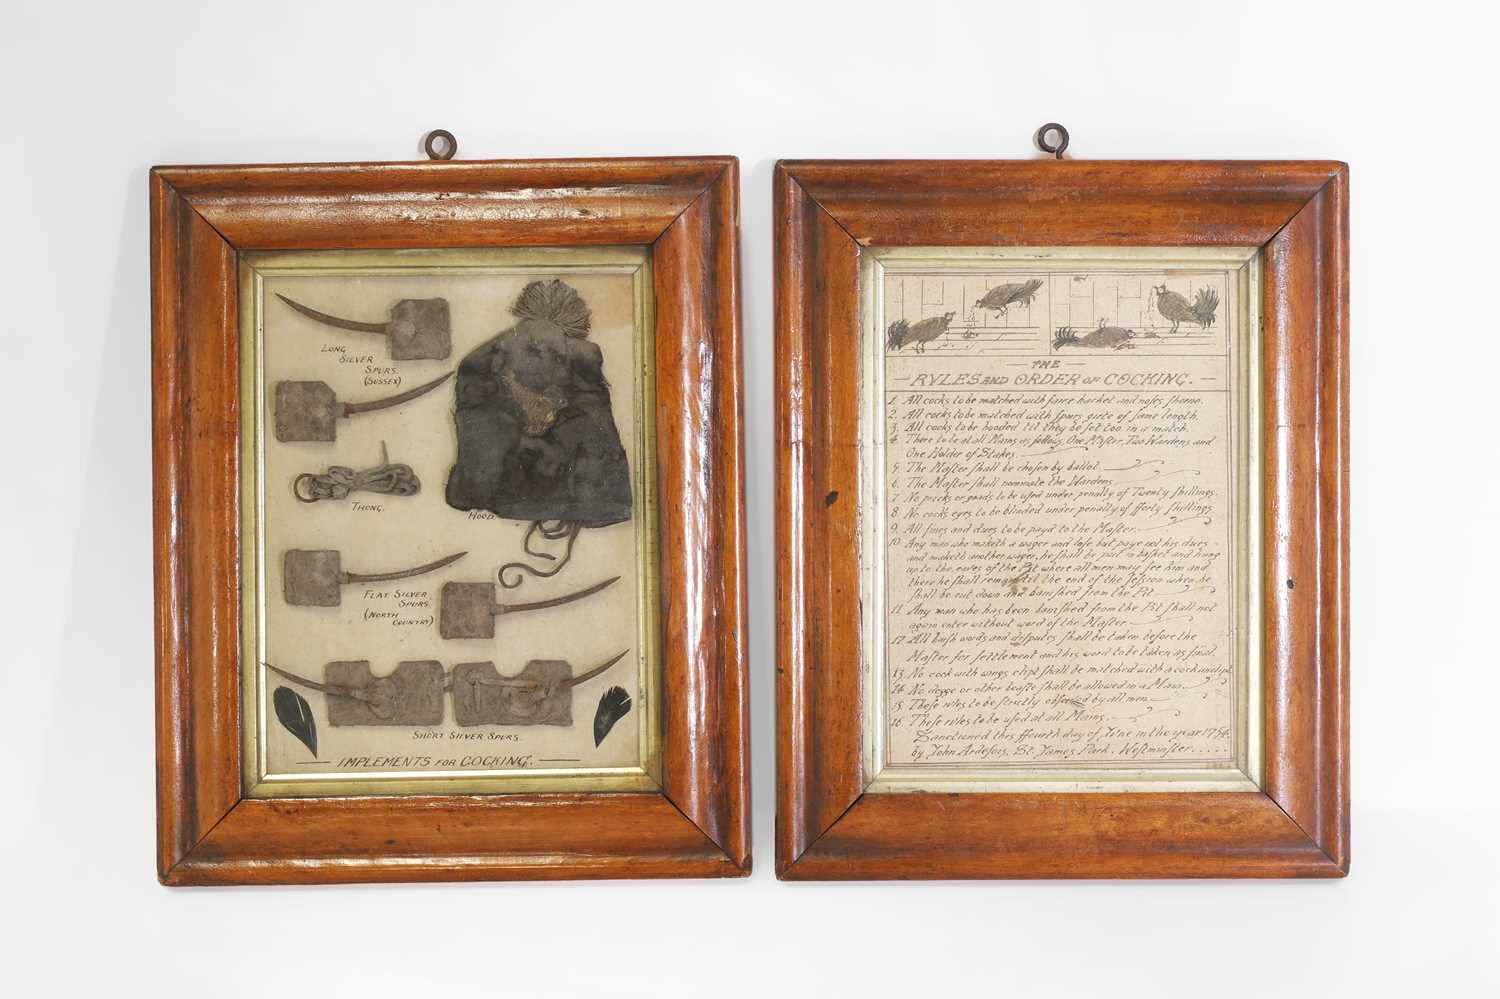 LONG
SILVER
SPURS.
(SUSSEX)
THONG.
HOOD.
FLAT SILVER
SPURS.
(NORTH
COUNTRY)
SHORT SILVER SPURS.
IMPLEMENTS FOR COCKING.
THE
RVLES AND ORDER OF COCKING.
1. All cocks to be matched with faire hackel and noses
2. All cocks to be matched with spurs girte of same length.
3. All cocks to be hooded til they be set too in a match.
4. There to be at all Mains as follows, One Master, Two Wardens and
One Holder of Stakes.
5. The Master shall be chosen by ballot
6. The Master shall nominate the Wardens
7. No pricks or goads to be used under penalty of Twenty shillings.
8. No cocks eyes to be blinded under penalty of fforty shillings
9. All fines and dues to be payd to the Master.
10. Any man who maketh a wager and lose but paye not his dues
and maketh another wager, he shall be put in basket and hung
up to the eaves of the Pit where all men may see him and
there he shall remain til the end of the session when he
shall be cut down and banished from the Pit
11. Any man who has been banished from the Pit shall not
again enter without word of the Master.
12. All harsh words and disputes shall be taken before the
Master for settlement and his word to be taken as final.
13. No cock with wings clipt shall be matched with a cock unclipt
14. No dogge or other beaste shall be allowed in a Main
15. These rules to be strictly observed by all men
16. These rules to be used at all Mains.
Sanctioned this ffourth day of June in the year 1784
by John Ardesois, St. James Park. Westminster.....